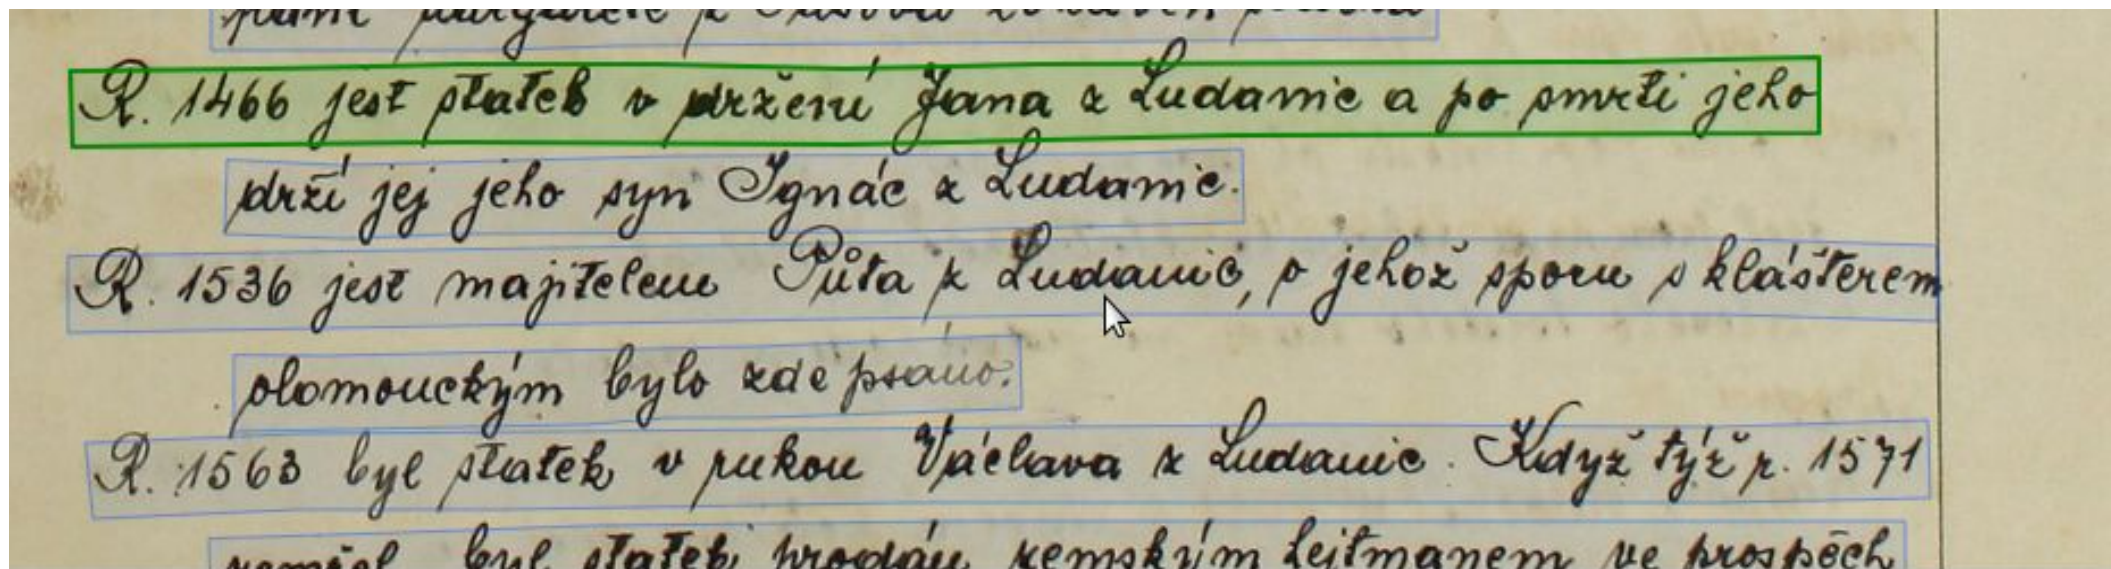 R. 1466 jest statek v držení Jana z Ludanic a po smrti jeho
drží jej jeho syn Ignác z Ludanic.
R. 1536 jest majitelem Půta z Ludanic, o jehož sporu s klášterem
olomouckým bylo zde psáno.
R. 1563 byl statek v rukou Václava z Ludanic. Když týž r. 1571
zemřel byl statek prodán zemským hejtmanem ve prospěch